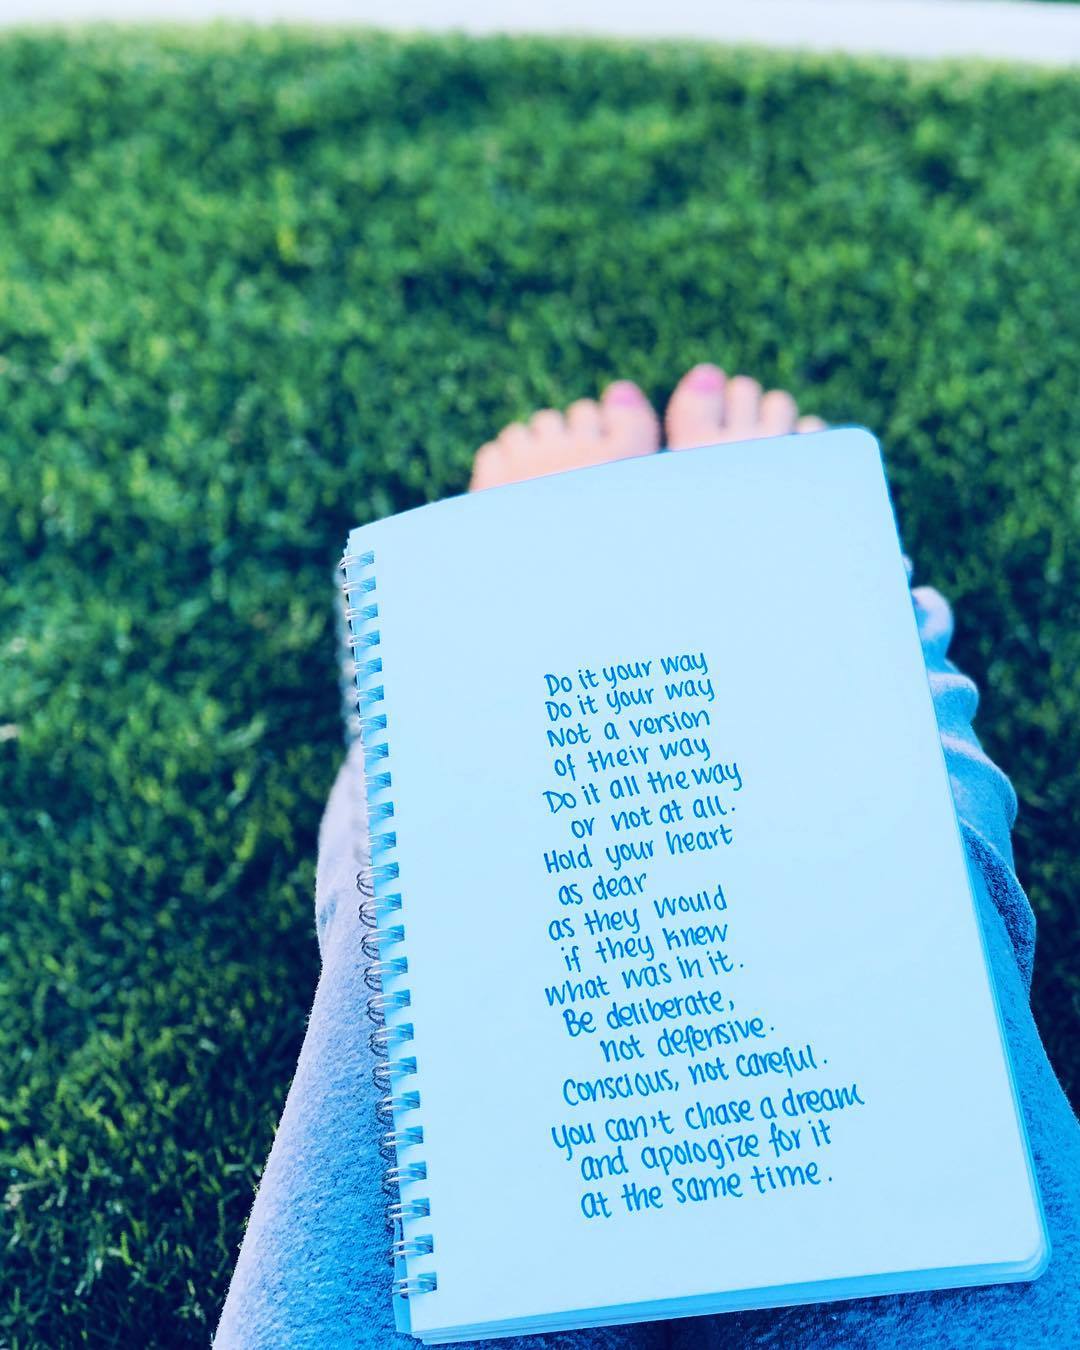 Do it your way
Do it your way
Not a version
of their way
Do it all the way
or not at all.
Hold your heart
as dear
as they would
if they knew
what was in it.
Be deliberate,
not defensive.
Conscious, not careful.
You can't chase a dream
and apologize for it
at the same time.